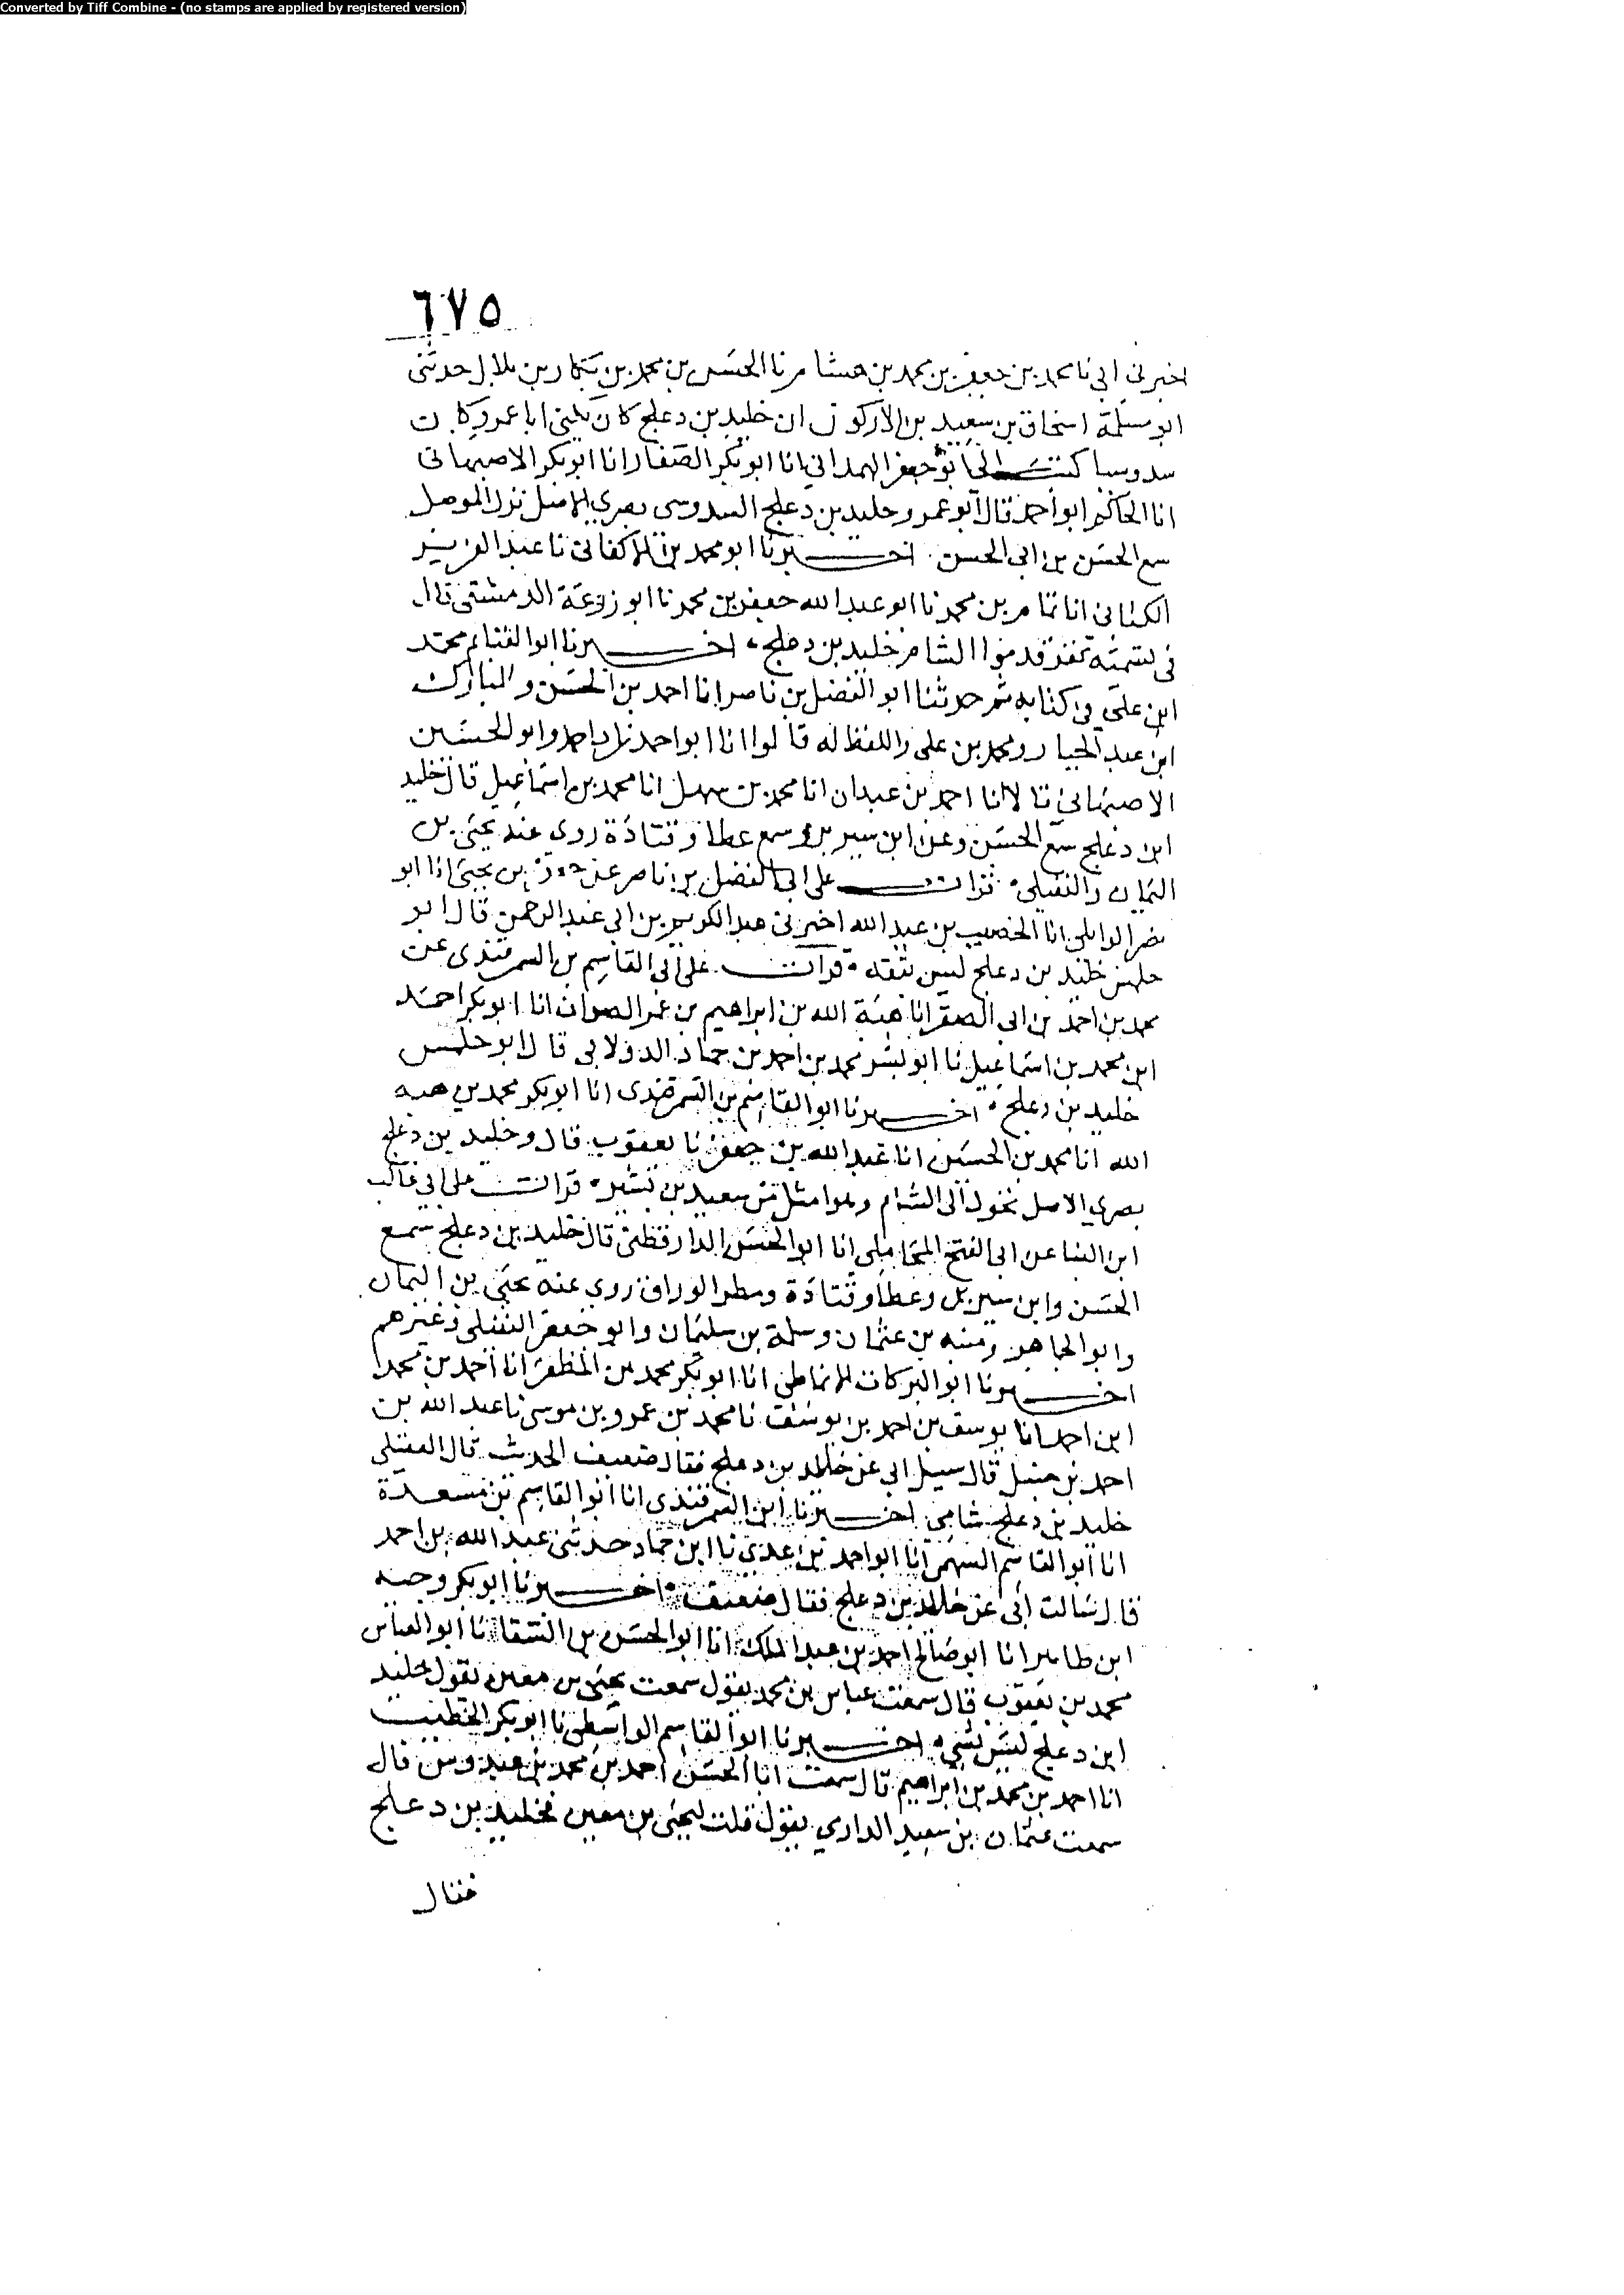 Converted by Tiff Combine - (no stamps are applied by registered version)
٦٧٥
اخبرني ابي نا محمد بن جعفر بن محمد بن هشام نا الحسن بن محمد بن بكار بن بلال حدثني
ابو مسلمة اسحاق بن سعيد بن الاركون ان خليد بن دعلج كان يكنى ابا عمرو كان
سدوسيا كتب الي ابو جعفر الهمداني انا ابو بكر الصفار انا ابو بكر الاصبهاني
انا الحاكم ابو احمد قال ابو عمرو خليد بن دعلج السدوسي بصري الاصل نزل الموصل
سمع الحسن بن ابي الحسن اخبرنا ابو محمد بن الاكفاني نا عبد العزيز
الكتاني انا تمام بن محمد نا ابو عبد الله جعفر بن محمد نا ابو زرعة الدمشقي قال
في تسمية نفر قدموا الشام خليد بن دعلج اخبرنا ابو الغنائم محمد
ابن علي في كتابه ثم حدثنا ابو الفضل بن ناصر انا احمد بن الحسن والمبارك
ابن عبد الجبار ومحمد بن علي واللفظ له قالوا انا ابو احمد زاد احمد وابو الحسين
الاصبهاني قالا انا احمد بن عبدان انا محمد بن سهل انا محمد بن اسماعيل قال خليد
ابن دعلج سمع الحسن وعن ابن سيرين وسمع عطا وقتادة روى عنه يحيى بن
اليمان والنفيلي قرات على ابي الفضل بن ناصر عن بن يحيى انا ابو
نصر الوايلي انا الخصيب بن عبد الله اخبرني عبد الكريم بن ابي عبد الرحمن قال ابو
حلبس خليد بن دعلج ليس بثقة قرات على ابي القاسم بن السمرقندي عن
محمد بن احمد بن ابي الصقر انا هبة الله بن ابراهيم بن عمر الصواف انا ابو بكر احمد
ابن محمد بن اسماعيل نا ابو بشر محمد بن احمد بن حماد الدولابي قال ابو حلبس
خليد بن دعلج اخبرنا ابو القاسم بن السمرقندي انا ابو بكر محمد بن هبة
الله انا محمد بن الحسين انا عبد الله بن جعفر نا يعقوب قال وخليد بن دعلج
بصري الاصل تحول الى الشام وهو امثل من سعيد بن بشير قرات على ابي غالب
ابن البنا عن ابي الفتح المحاملي انا ابو الحسن الدارقطني قال خليد بن دعلج سمع
الحسن وابن سيرين وعطا وقتادة ومطر الوراق روى عنه يحيى بن اليمان
وابو الجماهر ومنبه بن عثمان وسلمة بن سليمان وابو جعفر النفيلي وغيرهم
اخبرنا ابو البركات الانماطي انا ابو بكر محمد بن المظفر انا احمد بن محمد
ابن احمد انا يوسف بن احمد بن يوسف نا محمد بن عمرو بن موسى نا عبد الله بن
احمد بن حنبل قال سيل ابي عن خليد بن دعلج فقال ضعيف الحديث قال العقيلي
خليد بن دعلج شامي اخبرنا ابن السمرقندي انا ابو القاسم بن مسعدة
انا ابو القاسم السهمي انا ابو احمد بن عدي نا ابن حماد حدثني عبد الله بن احمد
قال سالت ابي عن خليد بن دعلج فقال ضعيف اخبرنا ابو بكر وجيه
ابن طاهر انا ابو صالح احمد بن عبد الملك انا ابو الحسن بن السقا نا ابو العباس
محمد بن يعقوب قال سمعت عباس بن محمد يقول سمعت يحيى بن معين يقول خليد
ابن دعلج ليس بشي اخبرنا ابو القاسم الواسطي نا ابو بكر الخطيب
انا احمد بن محمد بن ابراهيم قال سمعت ابا الحسن احمد بن محمد بن عبدوس قال
سمعت عثمان بن سعيد الدارمي يقول قلت ليحيى بن معين فخليد بن دعلج
فقال